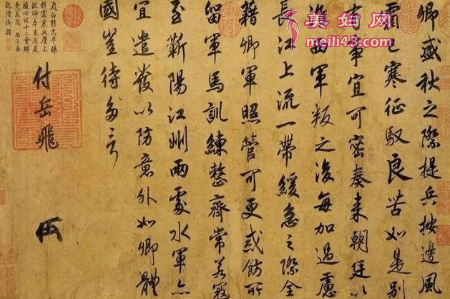 卿盛秋之際提兵按邊風
霜已寒征馭良苦如是別
有事宜可密奏来朝廷以
淮西軍叛之後每加過慮
長江上流一帶緩急之際全
藉卿軍照管可更戒飭所
留軍馬訓練整齊常若寇
至蘄陽江州兩處水軍亦
宜遣發以防意外如卿體
國豈待多言
付岳飛
www.meili43.com